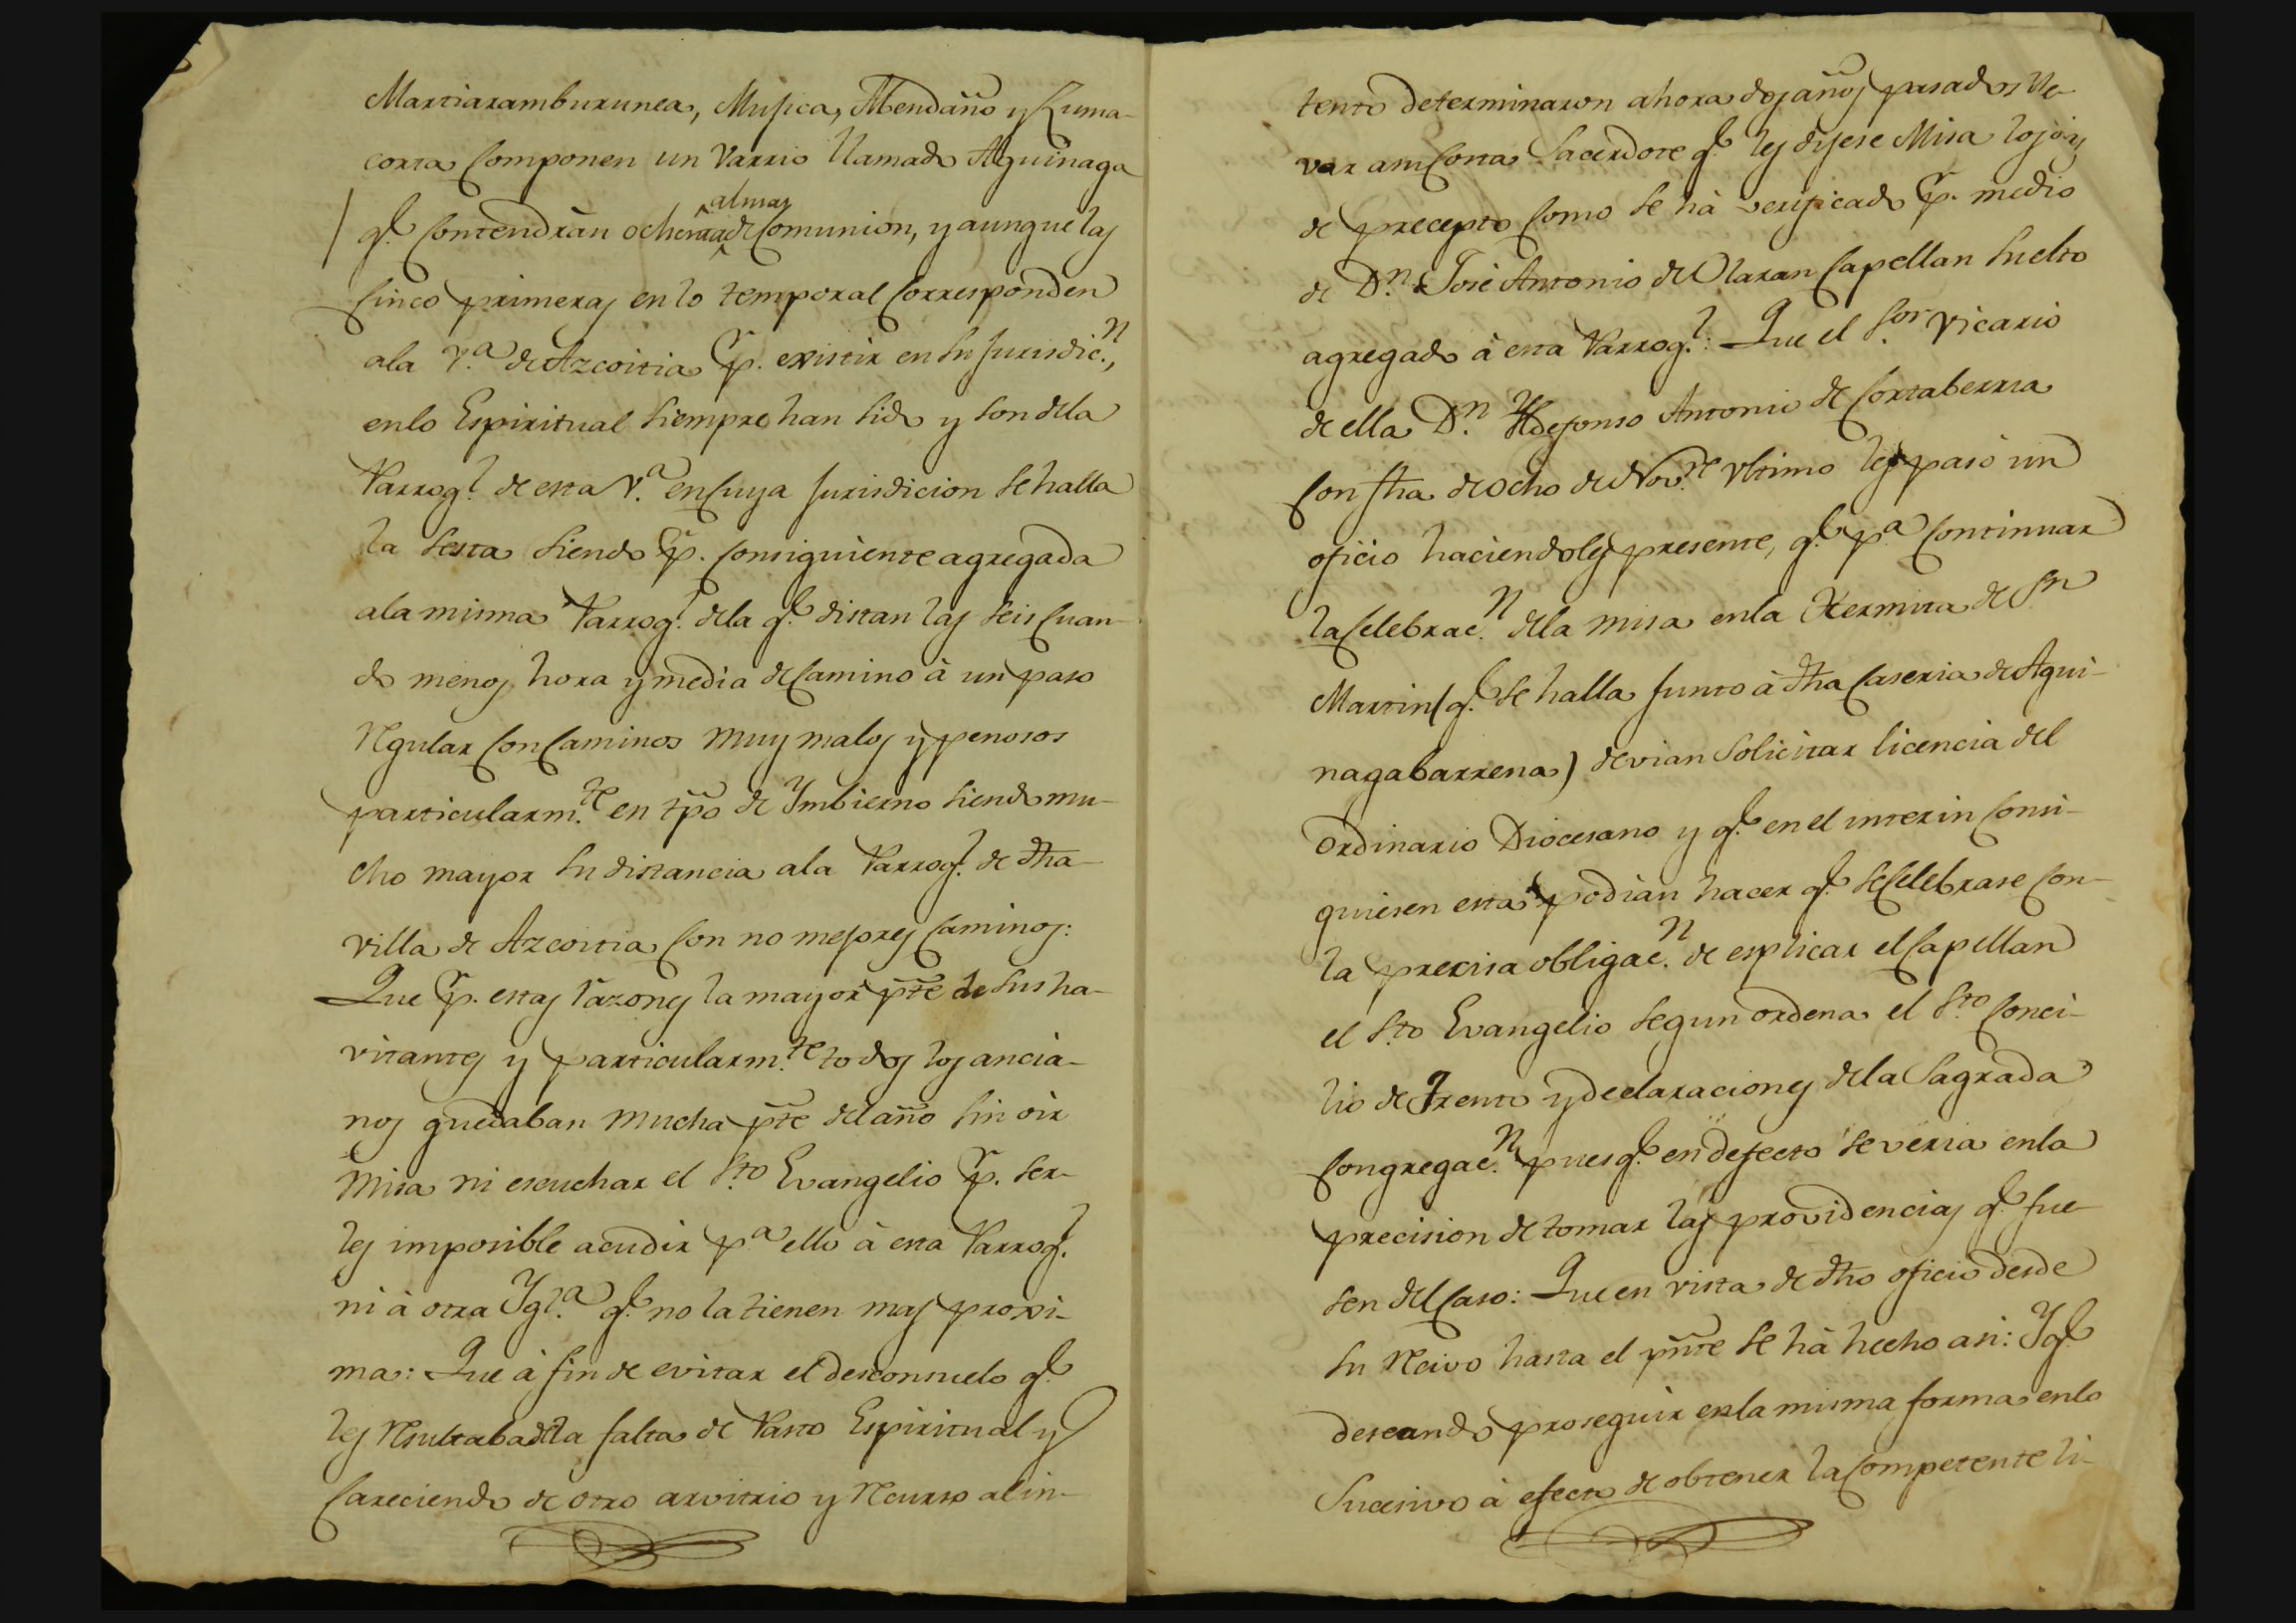 Martiaramburunea, Musica, Mendaño y Zuma-
corta Componen un Varrio llamado Aguinaga
almas
q.e Contendràn ochenta de Comunion, y aunque las
Cinco primeras en lo temporal Corresponden
ala V.a de Azcoitia p.r existir en su Jurisdic.n,
enlo Espiritual siempre han sido y son dela
Parroq.l de esta V.a en Cuya Jurisdicion se halla
la sesta siendo p.r Consiguiente agregada
ala misma Parroq.l dela q.e distan las seis Cuan-
do menos hora y media de Camino à un paso
Regular Con Caminos muy malos y penosos
particularm.te en tpõ de Ymbierno siendo mu-
cho mayor su distancia ala Parroq.l de dha
villa de Azcoitia Con no mejores Caminos:
Que p.r estas razones la mayor pte de sus ha-
vitantes y particularm.te todos los ancia-
nos quedaban mucha pte del año sin oir
Misa ni escuchar el S.to Evangelio p.r ser-
les imposible acudir p.a ello à esta Parroq.l
ni à otra Ygl.a q.e no la tienen mas proxi-
ma: Que à fin de evitar el desconsuelo q.e
les Resultaba dela falta de Pasto Espiritual y
Careciendo de otro arvitrio y Recurso al in-
tento determinaron ahora dos años pasados lle-
var a su Costa Sacerdote q.e les dijese Misa los dias
de precepto Como se hà verificado p.r medio
de D.n Josè Antonio de Olaran Capellan suelto
agregado à esta Parroq.l: Que el S.or Vicario
de ella D.n Yldefonso Antonio de Cortaberria
Con fha de ocho de Nov.re ultimo les pasò un
oficio haciendoles presente, q.e p.a Continuar
la Celebrac.n dela misa enla Hermita de Sn
Martin (q.e se halla junto à dha Caseria de Agui-
nagabarrena) devian Solicitar licencia del
Ordinario Diocesano y q.e en el interin Consi-
guiesen esta podian hacer q.e se Celebrase Con-
la precisa obligac.n de esplicar el Capellan
el S.to Evangelio segun ordena el S.to Conci-
lio de Trento y declaraciones dela Sagrada
Congregac.n pues q.e en defecto se veria enla
precision de tomar las providencias q.e fue-
sen del Caso: Que en vista de dho oficio desde
su Recivo hasta el pnte se hà hecho asi: Y q.e
deseando proseguir enla misma forma enlo
Sucesivo à efecto de obtener la Competente li-